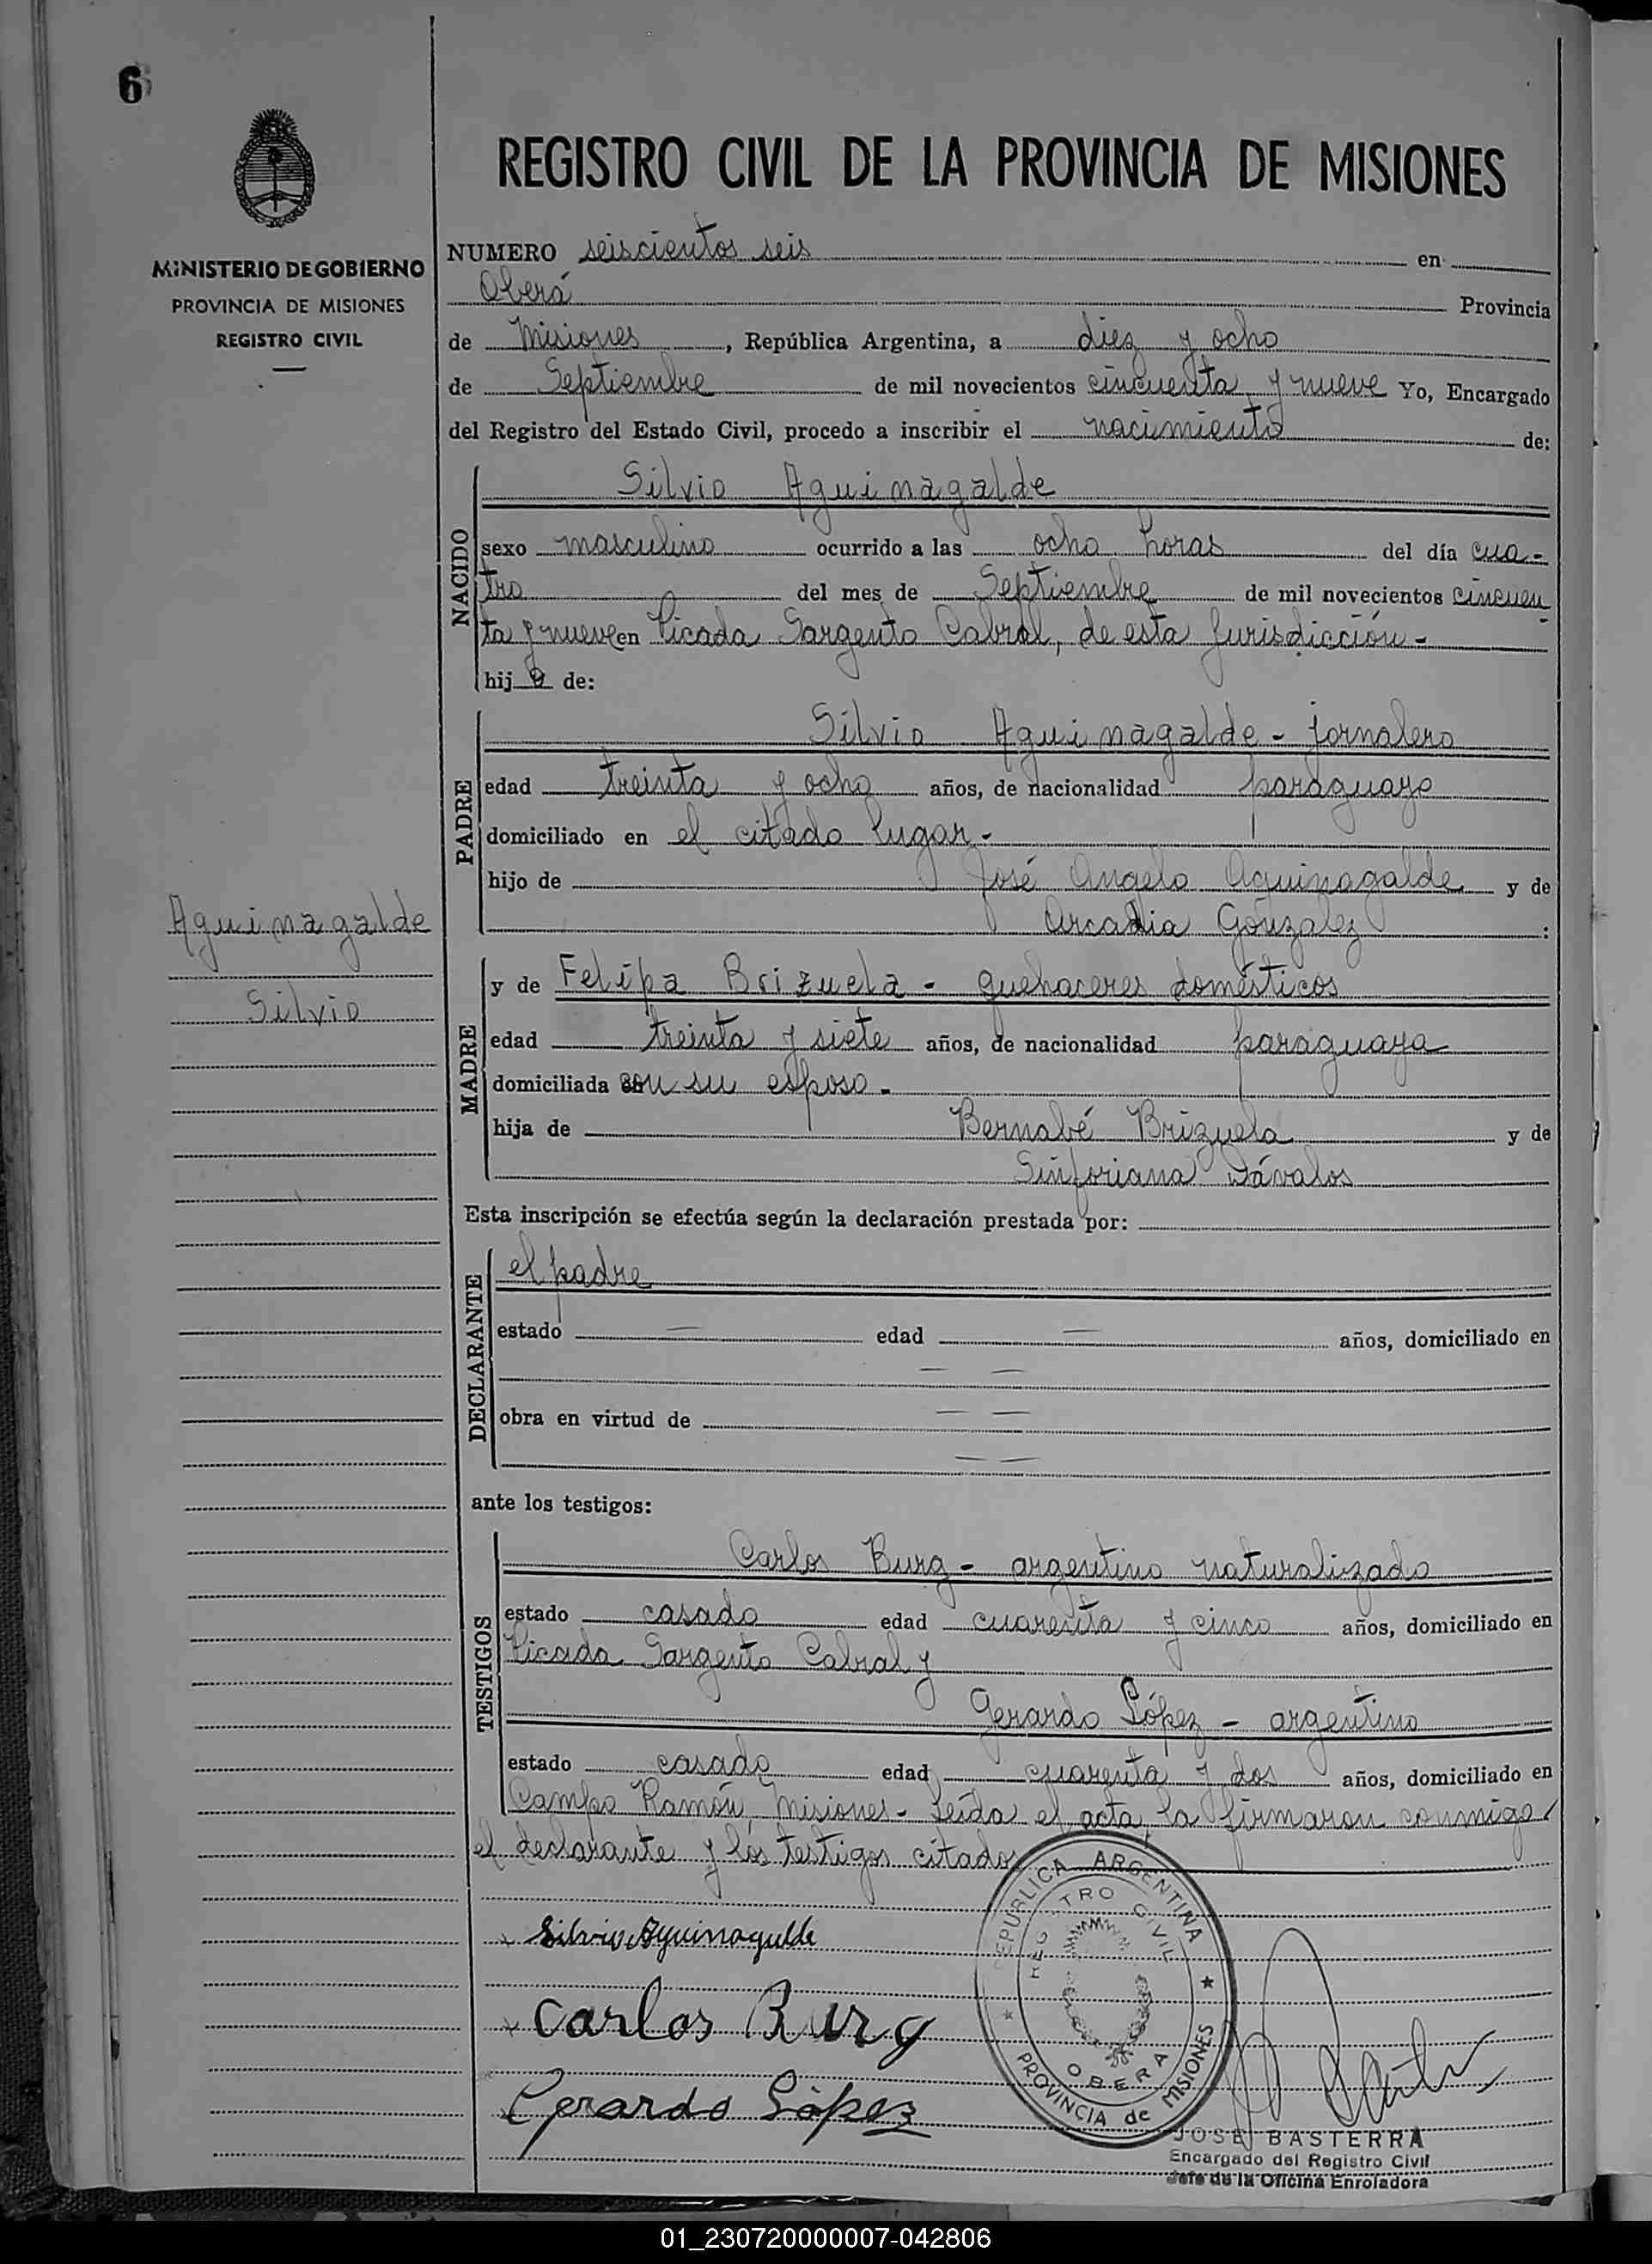 6
REGISTRO CIVIL DE LA PROVINCIA DE MISIONES
MINISTERIO DE GOBIERNO
PROVINCIA DE MISIONES
REGISTRO CIVIL
NUMERO seiscientos seis en
Oberá Provincia
de Misiones, República Argentina, a diez y ocho
de Septiembre de mil novecientos cincuenta y nueve Yo, Encargado
del Registro del Estado Civil, procedo a inscribir el nacimiento de:
NACIDO
Silvio Aguinagalde
sexo masculino ocurrido a las ocho horas del día cua-
tro del mes de Septiembre de mil novecientos cincuen
ta y nueve en Picada Sargento Cabral, de esta Jurisdicción-
hijo de:
PADRE
Silvio Aguinagalde - jornalero
edad treinta y ocho años, de nacionalidad paraguayo
domiciliado en el citado lugar-
hijo de José Angelo Aguinagalde y de
Arcadia González :
Aguinagalde
Silvio
MADRE
y de Felipa Brizuela - quehaceres domésticos
edad treinta y siete años, de nacionalidad paraguaya
domiciliada con su esposo-
hija de Bernabé Brizuela y de
Sinforiana Dávalos
Esta inscripción se efectúa según la declaración prestada por:
DECLARANTE
el padre
estado — edad — años, domiciliado en
— —
obra en virtud de — —
— —
ante los testigos:
TESTIGOS
Carlos Burg - argentino naturalizado
estado casado edad cuarenta y cinco años, domiciliado en
Picada Sargento Cabral y
Gerardo López - argentino
estado casado edad cuarenta y dos años, domiciliado en
Campo Ramón, Misiones- Leída el acta, la firmaron conmigo
el declarante y los testigos citados
Silvio Aguinagalde
Carlos Burg
Gerardo López
REPUBLICA ARGENTINA
REGISTRO CIVIL
OBERA
PROVINCIA de MISIONES
JOSE BASTERRA
Encargado del Registro Civil
Jefe de la Oficina Enroladora
01_230720000007-042806